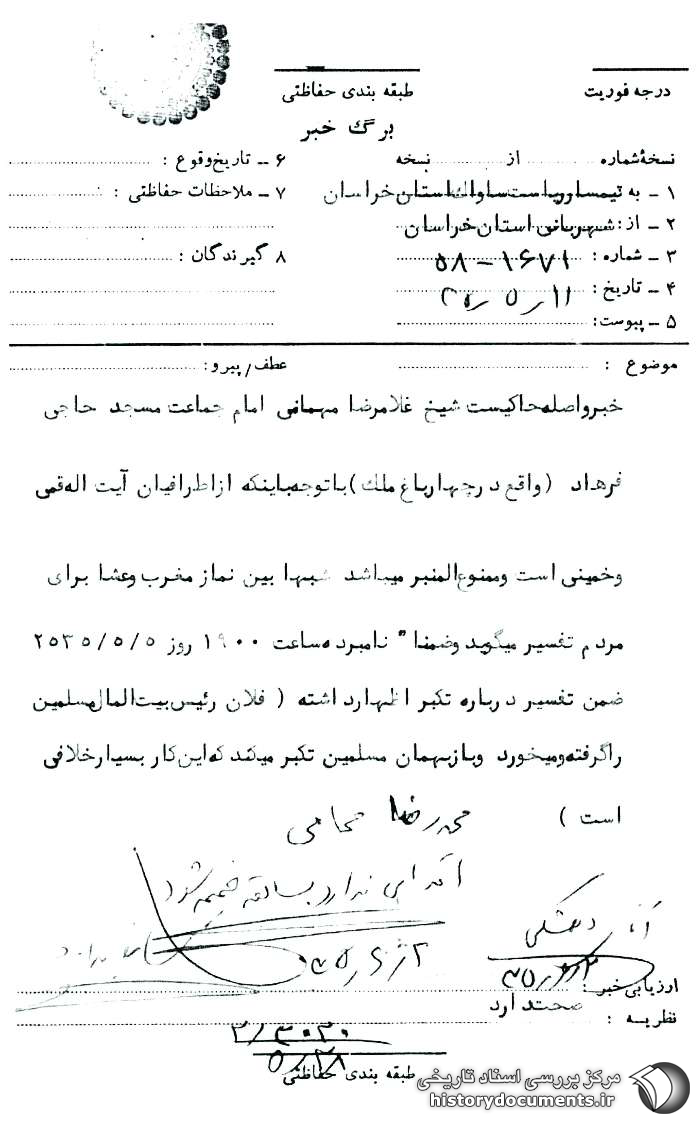 درجه فوریت
طبقه بندی حفاظتی
برگ خبر
نسخهٔ شماره از نسخه
۱ ــ به تیمسار ریاست ساواک استان خراسان
۲ ــ از: شهربانی استان خراسان
۳ ــ شماره: ۱۶۷۱ – ۵۸
۴ ــ تاریخ: ۱۱ ر ۵ ر ۳۵
۵ ــ پیوست:
۶ ــ تاریخ وقوع :
۷ ــ ملاحظات حفاظتی :
۸ گیرندگان :
موضوع :
عطف/ پیرو:
خبر واصله حاکیست شیخ غلامرضا مهمانی امام جماعت مسجد حاجی
فرهاد (واقع در چهارباغ ملک) با توجه باینکه از اطرافیان آیت اله قمی
و خمینی است و ممنوع المنبر میباشد شبها بین نماز مغرب و عشا برای
مردم تفسیر میگوید و ضمنا" نامبرده ساعت ۱۹۰۰ روز ۲۵۳۵/۵/۵
ضمن تفسیر درباره تکبر اظهار داشته ( فلان رئیس بیت المال مسلمین
را گرفته و میخورد و باز بهمان مسلمین تکبر میکند که این کار بسیار خلافی
است )
اقدامی ندارد بسابقه ضمیمه شود
ارزیابی خبر : صحت دارد
نظریه :
طبقه بندی حفاظتی
مرکز بررسی اسناد تاریخی
historydocuments.ir